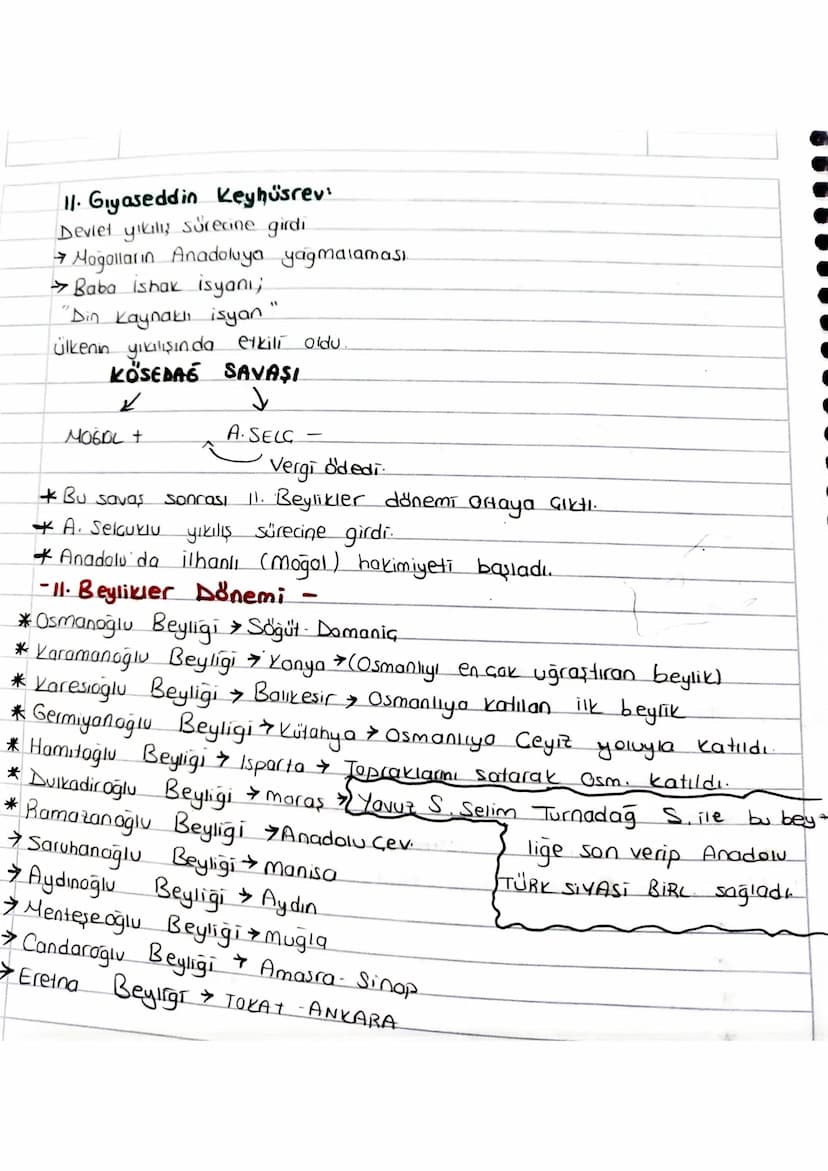 II. Gıyaseddin Keyhüsrev:
Devlet yıkılış sürecine girdi
→ Moğolların Anadoluya yağmalaması
→ Baba ishak isyanı;
"Din kaynaklı isyan"
ülkenin yıkılışında etkili oldu.
KÖSEDAĞ SAVAŞI
↙ ↓
MOĞOL + A. SELÇ -
Vergi ödedi.
* Bu savaş sonrası II. Beylikler dönemi ortaya çıktı.
* A. Selçuklu yıkılış sürecine girdi.
* Anadolu'da ilhanlı (moğol) hakimiyeti başladı.
- II. Beylikler Dönemi -
* Osmanoğlu Beyliği → Söğüt - Domaniç
* Karamanoğlu Beyliği → Konya → (Osmanlıyı en çok uğraştıran beylik)
* Karesioğlu Beyliği → Balıkesir → Osmanlıya katılan ilk beylik
* Germiyanoğlu Beyliği → Kütahya → Osmanlıya Çeyiz yoluyla katıldı.
* Hamitoğlu Beyliği → Isparta → Topraklarını satarak Osm. katıldı.
* Dulkadiroğlu Beyliği → maraş → Yavuz S. Selim Turnadağ S. ile bu bey-
liğe son verip Anadolu
TÜRK SİYASİ BİRL. sağladı.
* Ramazanoğlu Beyliği → Anadolu Çev.
→ Saruhanoğlu Beyliği → Manisa
→ Aydınoğlu Beyliği → Aydın
→ Menteşeoğlu Beyliği → Muğla
→ Candaroğlu Beyliği → Amasra - Sinop
→ Eretna Beyliği → TOKAT - ANKARA